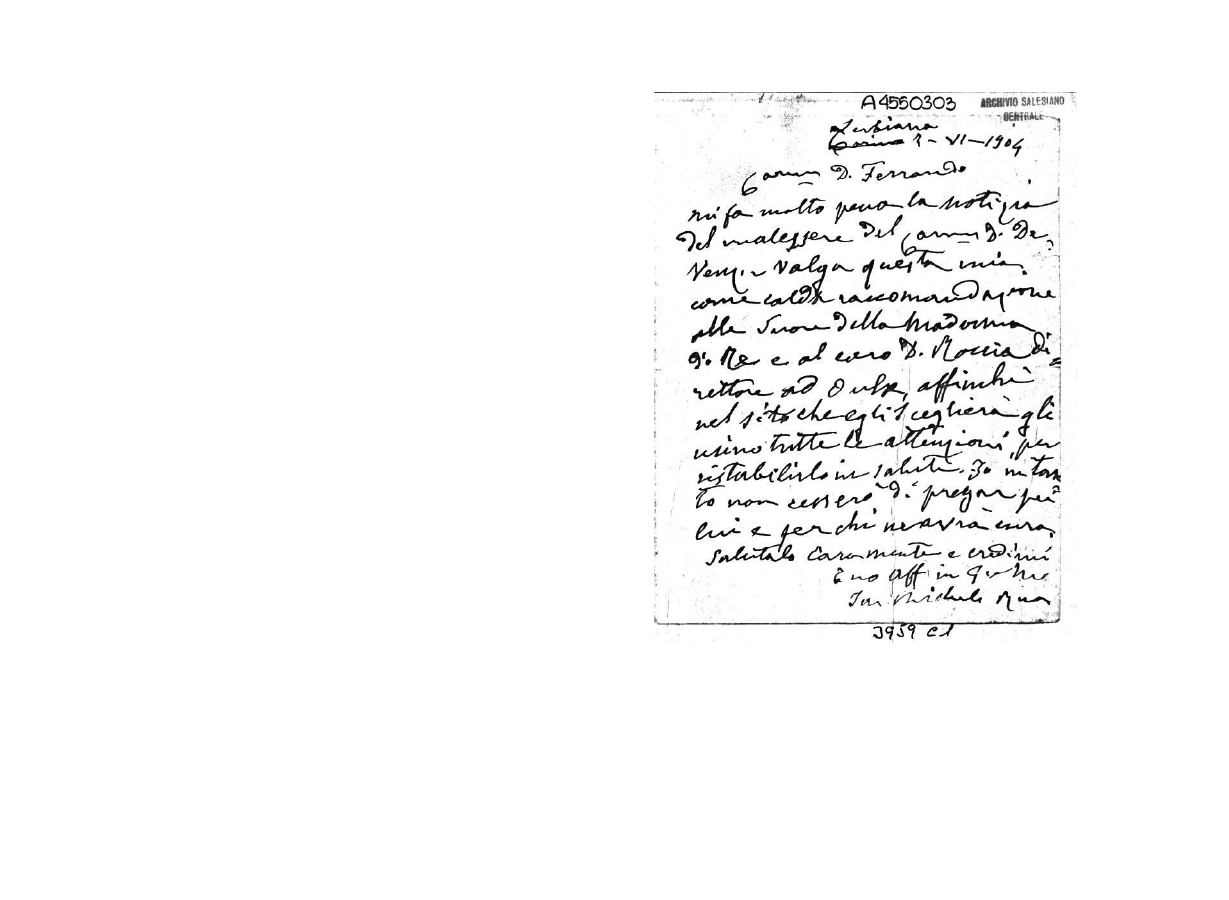 A4550303
ARCHIVIO SALESIANO
CENTRALE
Torino 2-VI-1904
Carmo D. Ferrando
mi fa molto pena la notizia
del malessere del Carmo D. De
Valga questa mia
come calda raccomandazione
alle Suore della Madonna
di Re e al caro D. Roccia di=
rettore ad Oulx, affinchè
nel sito che egli sceglierà gli
usino tutte le attenzioni per
ristabilirlo in salute. Io intan
to non cesserò di pregar per
lui e per chi ne avrà cura.
Salutalo caramente e credimi
tuo aff in G e M
Sac Michele Rua
3959 C1